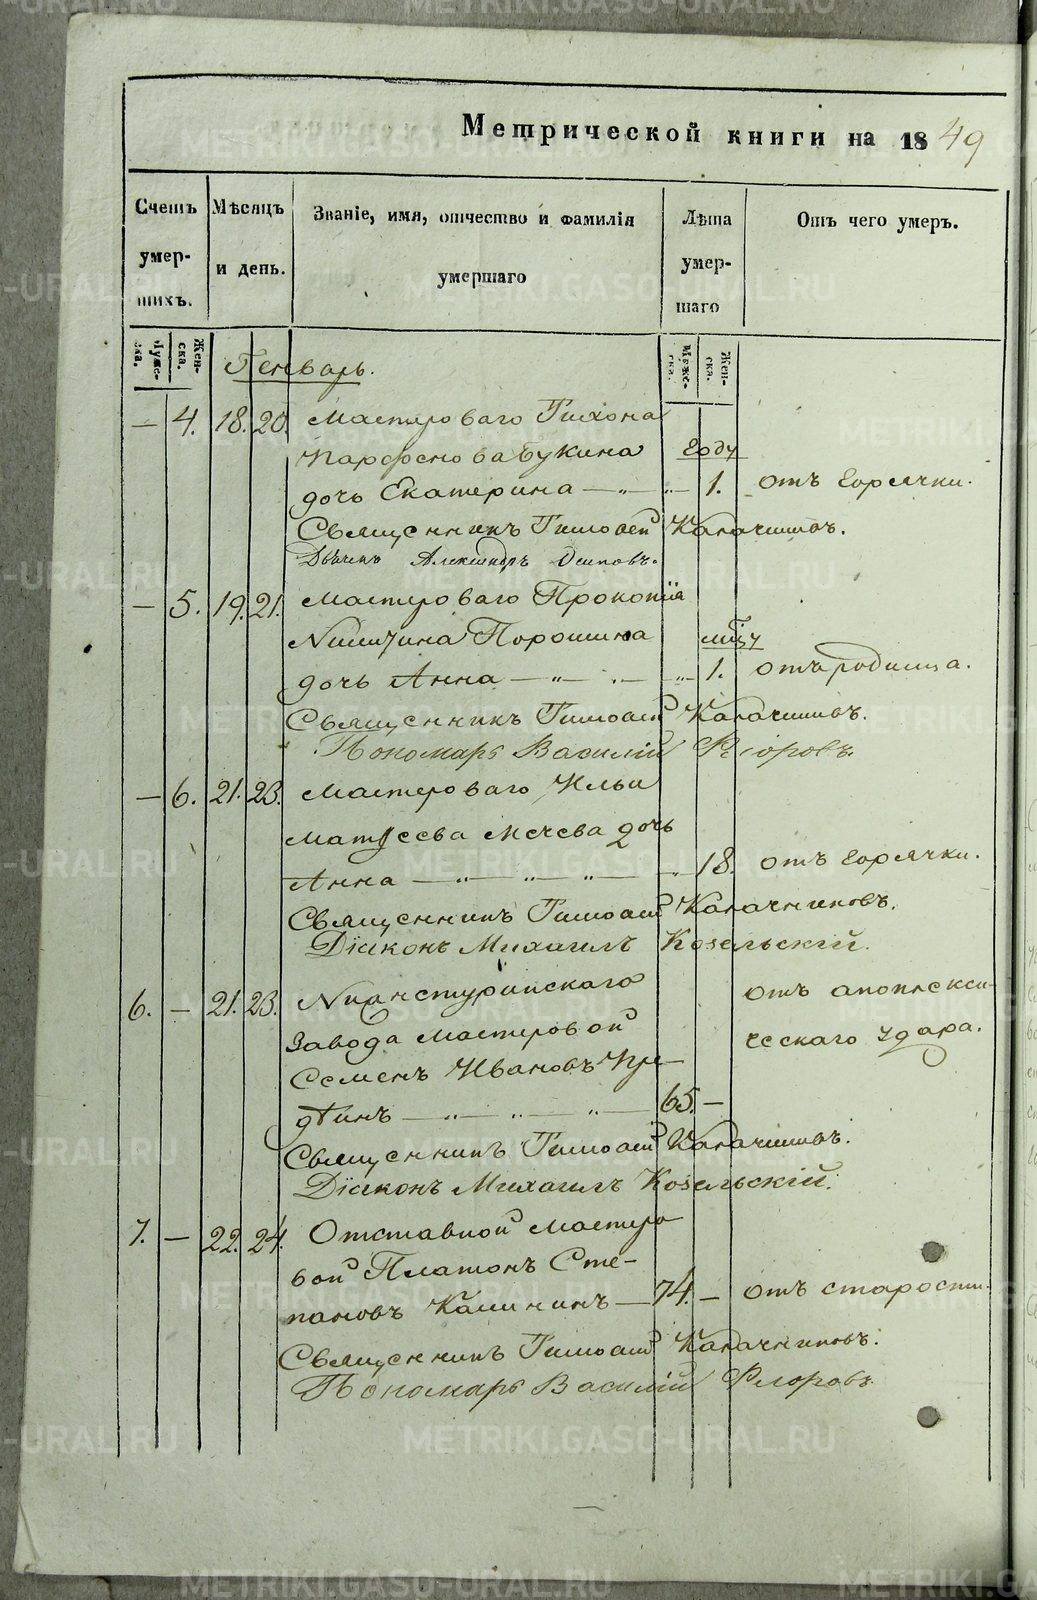 Метрической книги на 1849
Счетъ умер- шихъ.
Мѣсяцъ и день.
Званіе, имя, отчество и фамилія умершаго
Лѣта умер- шаго
Отъ чего умеръ.
Муже- ска.
Жен- ска.
Муже- ска.
Жен- ска.
Генварь.
— 4. 18. 20. Мастероваго Тихона
Парфенова Букина году
дочь Екатерина — „ — „ — 1. отъ горячки.
Священникъ Тимофей Калачниковъ.
Дьячекъ Александръ Осиповъ.
— 5. 19. 21. Мастероваго Прокопія
Никитина Порошина мцу
дочь Анна — „ — „ — 1. отъ родимца.
Священникъ Тимофей Калачниковъ.
Пономарь Василій Флоровъ.
— 6. 21. 23. Мастероваго Ильи
Матвеева Мечева дочь
Анна — „ — „ — „ — „ 18. отъ горячки.
Священникъ Тимофей Калачниковъ.
Діаконъ Михаилъ Козельскій.
6. — 21. 23. Нижнетуринскаго отъ апоплекси-
завода мастеровой ческаго удара.
Семенъ Ивановъ
— „ — „ — „ — 65. —
Священникъ Тимофей Калачниковъ.
Діаконъ Михаилъ Козельскій.
7. — 22. 24. Отставной мастеро
вой Платонъ Сте-
пановъ Калининъ — 74. — отъ старости.
Священникъ Тимофей Калачниковъ.
Пономарь Василій Флоровъ.
METRIKI.GASO-URAL.RU